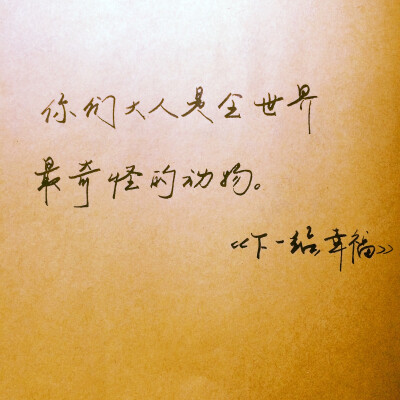 你们大人是全世界
最奇怪的动物。
《下一站,幸福》